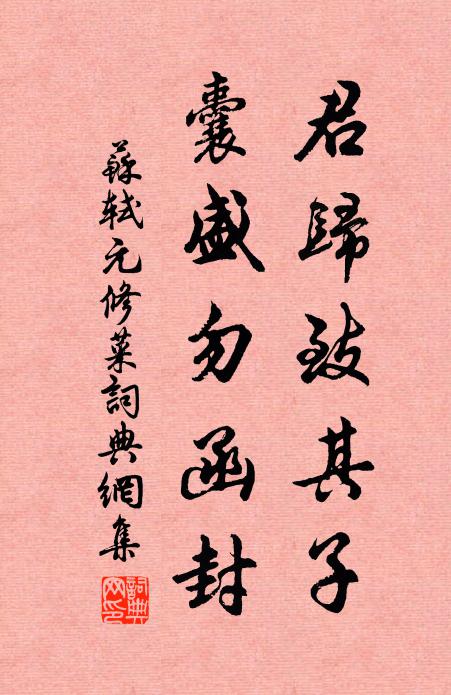 君歸致其子
囊盛勿函封
蘇軾元修菜詞典網集
詞典网印